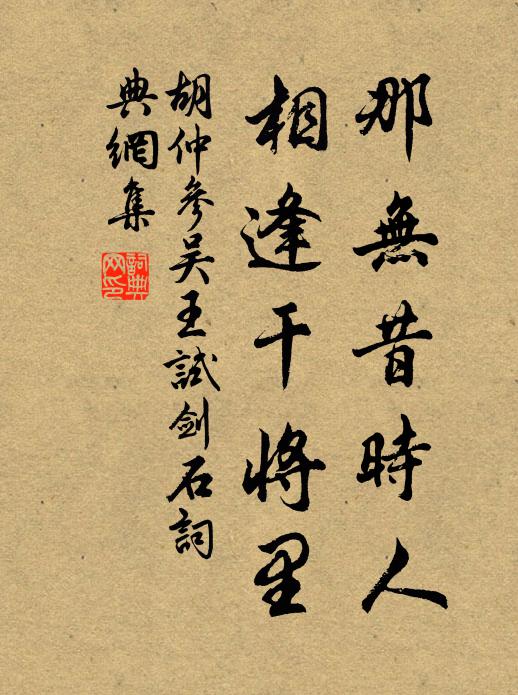 那無昔時人
相逢干將里
胡仲參吴王試劍石詞
典網集
詞典網印